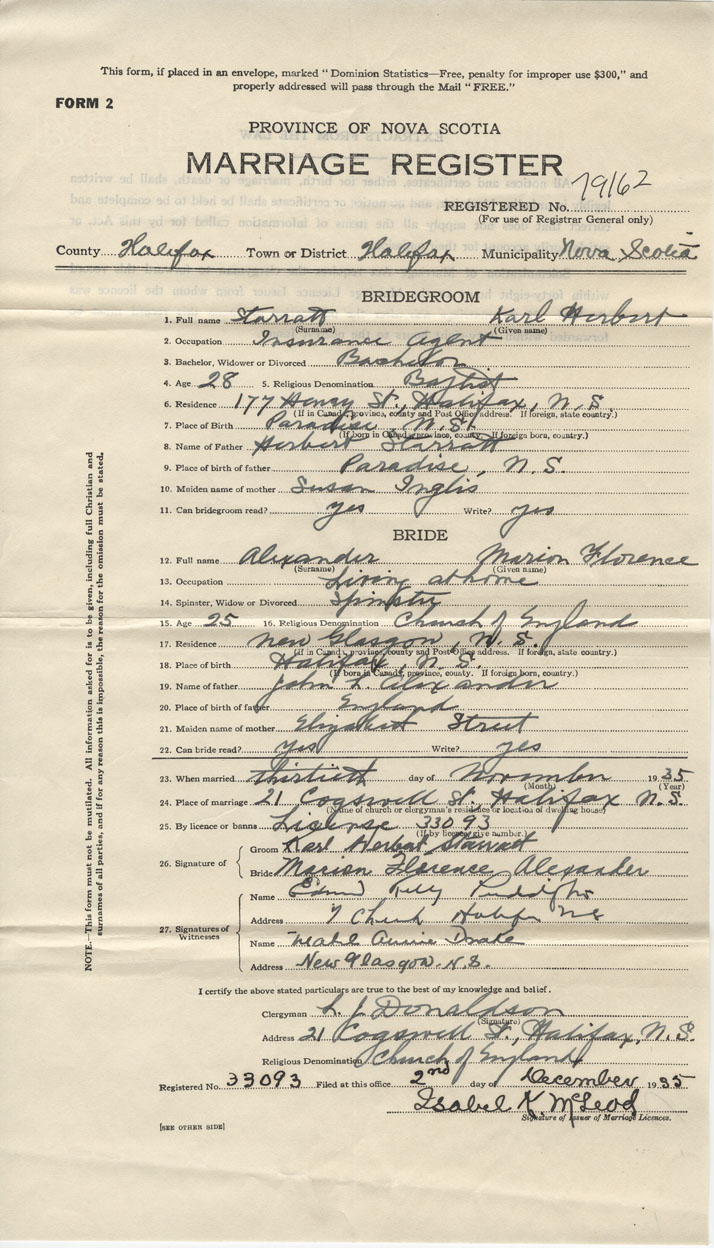 This form, if placed in an envelope, marked "Dominion Statistics—Free, penalty for improper use $300," and
properly addressed will pass through the Mail "FREE."
FORM 2
PROVINCE OF NOVA SCOTIA
MARRIAGE REGISTER
REGISTERED No. 79162
(For use of Registrar General only)
County Halifax Town or District Halifax Municipality Nova Scotia
BRIDEGROOM
1. Full name Starratt Karl Herbert
(Surname) (Given name)
2. Occupation Insurance Agent
3. Bachelor, Widower or Divorced Bachelor
4. Age 28 5. Religious Denomination Baptist
6. Residence 177 Henry St., Halifax, N.S.
(If in Canada, province, county and Post Office address. If foreign, state country.)
7. Place of Birth Paradise N.S.
(If born in Canada, province, county. If foreign born, country.)
8. Name of Father Herbert Starratt
9. Place of birth of father Paradise, N.S.
10. Maiden name of mother Susan Inglis
11. Can bridegroom read? yes Write? yes
BRIDE
12. Full name Alexander Marion Florence
(Surname) (Given name)
13. Occupation Living at home
14. Spinster, Widow or Divorced Spinster
15. Age 25 16. Religious Denomination Church of England
17. Residence New Glasgow, N.S.
(If in Canada, province, county and Post Office address. If foreign, state country.)
18. Place of birth Halifax, N.S.
(If born in Canada, province, county. If foreign born, country.)
19. Name of father John L. Alexander
20. Place of birth of father England
21. Maiden name of mother Elizabeth Street
22. Can bride read? Yes Write? yes
23. When married thirtieth day of November 1935
(Month) (Year)
24. Place of marriage 21 Cogswell St. Halifax N.S.
(Name of church or clergyman's residence or location of dwelling house)
25. By licence or banns License 33093
(If by licence give number.)
26. Signature of
Groom Karl Herbert Starratt
Bride Marion Florence Alexander
27. Signatures of Witnesses
Name
Address 7 Church Halifax NS
Name Annie Drake
Address New Glasgow. N.S.
I certify the above stated particulars are true to the best of my knowledge and belief.
Clergyman L. J. Donaldson
(Signature)
Address 21 Cogswell St., Halifax, N.S.
Religious Denomination Church of England
Registered No. 33093 Filed at this office 2nd day of December 1935
Isabel K. McLeod
Signature of Issuer of Marriage Licences.
[SEE OTHER SIDE]
NOTE.—This form must not be mutilated. All information asked for is to be given, including full Christian and
surnames of all parties, and if for any reason this is impossible, the reason for the omission must be stated.